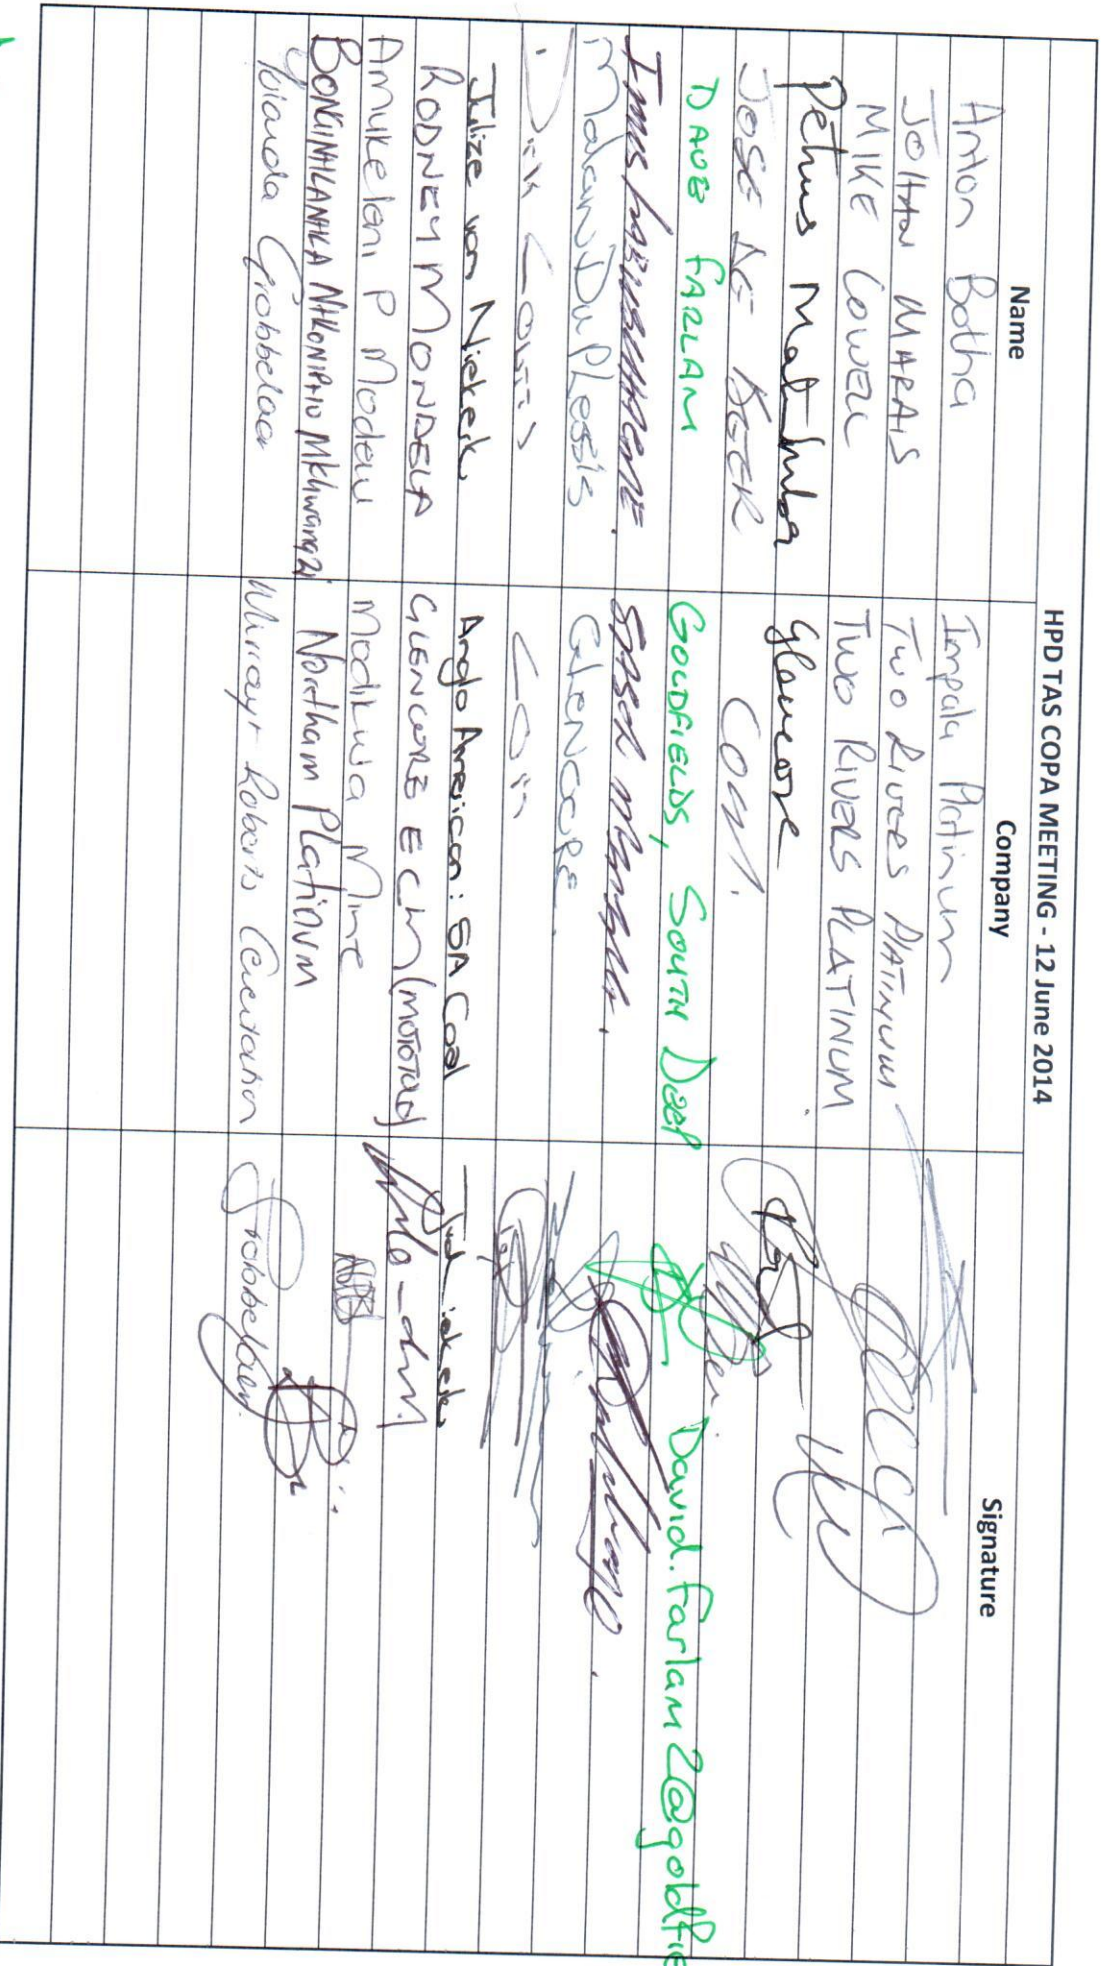 HPD TAS COPA MEETING - 12 June 2014
Name Company Signature
Anton Botha Impala Platinum
JOHAN MARAIS TWO RIVERS PLATINUM
MIKE COWELL TWO RIVERS PLATINUM
Petrus Matimba Glencore
JOSE DE BEER COM.
DAVE FARLAM GOLDFIELDS, SOUTH DEEP David.Farlam2@goldfie
Malan Du Plessis GLENCORE.
Jilize van Niekerk Anglo American: SA Coal
RODNEY MONDELA GLENCORE ECM (MOTOTOLO)
Amukelani P Modau Modikwa Mine
BONGINHLANHLA NKONIPHO Mkhwanazi Northam PLATINUM
Yolanda Grobbelaar Murray Roberts Cementation Grobbelaar